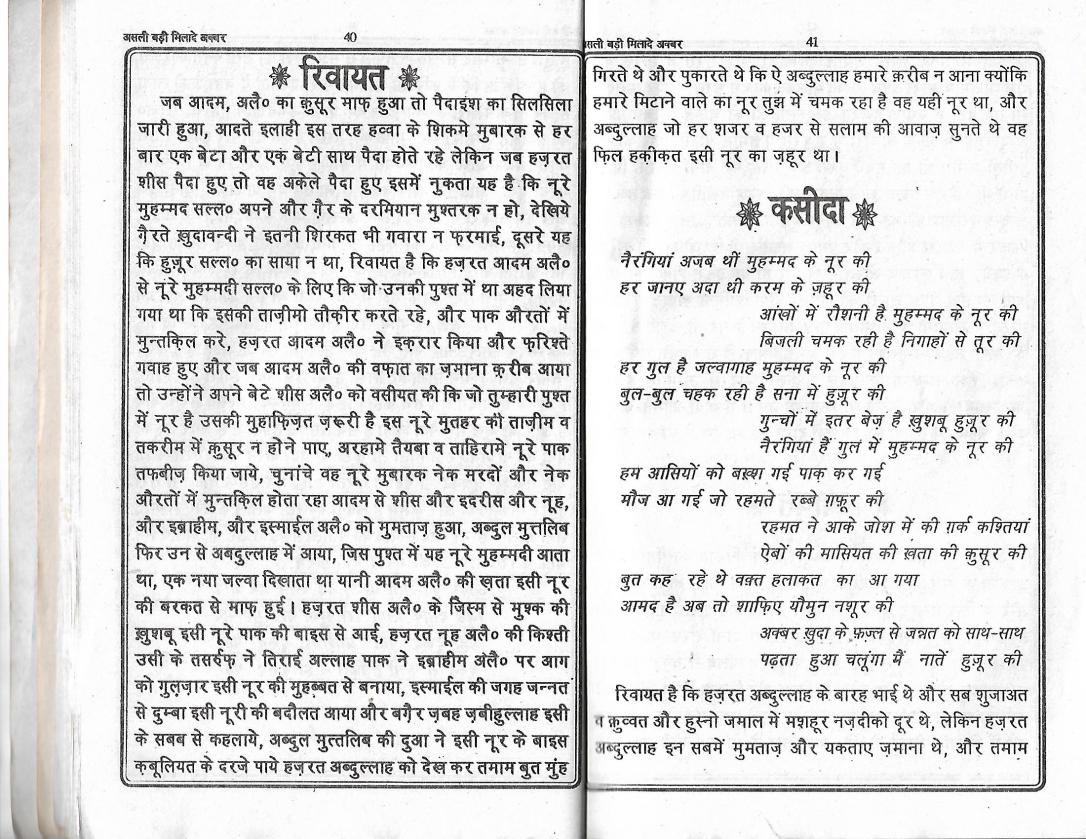 असली बड़ी मिलादे अक्बर 40
रिवायत
जब आदम, अलै० का क़ुसूर माफ़ हुआ तो पैदाइश का सिलसिला
जारी हुआ, आदते इलाही इस तरह हव्वा के शिकमे मुबारक से हर
बार एक बेटा और एक बेटी साथ पैदा होते रहे लेकिन जब हज़रत
शीस पैदा हुए तो वह अकेले पैदा हुए इसमें नुकता यह है कि नूरे
मुहम्मद सल्ल० अपने और ग़ैर के दरमियान मुश्तरक न हो, देखिये
ग़ैरते ख़ुदावन्दी ने इतनी शिरकत भी गवारा न फ़रमाई, दूसरे यह
कि हुज़ूर सल्ल० का साया न था, रिवायत है कि हज़रत आदम अलै०
से नूरे मुहम्मदी सल्ल० के लिए कि जो उनकी पुश्त में था अहद लिया
गया था कि इसकी ताज़ीमो तौक़ीर करते रहे, और पाक औरतों में
मुन्तक़िल करे, हज़रत आदम अलै० ने इक़रार किया और फ़रिश्ते
गवाह हुए और जब आदम अलै० की वफ़ात का ज़माना क़रीब आया
तो उन्होंने अपने बेटे शीस अलै० को वसीयत की कि जो तुम्हारी पुश्त
में नूर है उसकी मुहाफ़िज़त ज़रूरी है इस नूरे मुतहर की ताज़ीम व
तकरीम में क़ुसूर न होने पाए, अरहामे तैयबा व ताहिरामे नूरे पाक
तफबीज़ किया जाये, चुनांचे वह नूरे मुबारक नेक मरदों और नेक
औरतों में मुन्तकिल होता रहा आदम से शीस और इदरीस और नूह,
और इब्राहीम, और इस्माईल अलै० को मुमताज़ हुआ, अब्दुल मुत्तलिब
फिर उन से अबदुल्लाह में आया, जिस पुश्त में यह नूरे मुहम्मदी आता
था, एक नया जल्वा दिखाता था यानी आदम अलै० की ख़ता इसी नूर
की बरकत से माफ़ हुई। हज़रत शीस अलै० के जिस्म से मुश्क की
ख़ुशबू इसी नूरे पाक की बाइस से आई, हज़रत नूह अलै० की किश्ती
उसी के तसर्रुफ़ ने तिराई अल्लाह पाक ने इब्राहीम अलै० पर आग
को गुलज़ार इसी नूर की मुहब्बत से बनाया, इस्माईल की जगह जन्नत
से दुम्बा इसी नूरी की बदौलत आया और बग़ैर ज़बह ज़बीहुल्लाह इसी
के सबब से कहलाये, अब्दुल मुत्तलिब की दुआ ने इसी नूर के बाइस
क़बूलियत के दरजे पाये हज़रत अब्दुल्लाह को देख कर तमाम बुत मुंह
असली बड़ी मिलादे अक्बर 41
गिरते थे और पुकारते थे कि ऐ अब्दुल्लाह हमारे क़रीब न आना क्योंकि
हमारे मिटाने वाले का नूर तुझ में चमक रहा है वह यही नूर था, और
अब्दुल्लाह जो हर शजर व हजर से सलाम की आवाज़ सुनते थे वह
फ़िल हक़ीक़त इसी नूर का ज़हूर था।
कसीदा
नैरंगियां अजब थीं मुहम्मद के नूर की
हर जानए अदा थी करम के ज़हूर की
आंखों में रौशनी है मुहम्मद के नूर की
बिजली चमक रही है निगाहों से तूर की
हर गुल है जल्वागाह मुहम्मद के नूर की
बुल-बुल चहक रही है सना में हुज़ूर की
गुन्चों में इतर बेज़ है ख़ुशबू हुज़ूर की
नैरंगियां हैं गुल में मुहम्मद के नूर की
हम आसियों को बख़्श गई पाक कर गई
मौज आ गई जो रहमते रब्बे ग़फ़ूर की
रहमत ने आके जोश में की ग़र्क कश्तियां
ऐबों की मासियत की ख़ता की क़ुसूर की
बुत कह रहे थे वक़्त हलाकत का आ गया
आमद है अब तो शाफ़िए यौमुन नशूर की
अक्बर ख़ुदा के फ़ज़्ल से जन्नत को साथ-साथ
पढ़ता हुआ चलूंगा मैं नातें हुज़ूर की
रिवायत है कि हज़रत अब्दुल्लाह के बारह भाई थे और सब शुजाअत
व क़ुव्वत और हुस्नो जमाल में मशहूर नज़दीको दूर थे, लेकिन हज़रत
अब्दुल्लाह इन सबमें मुमताज़ और यकताए ज़माना थे, और तमाम